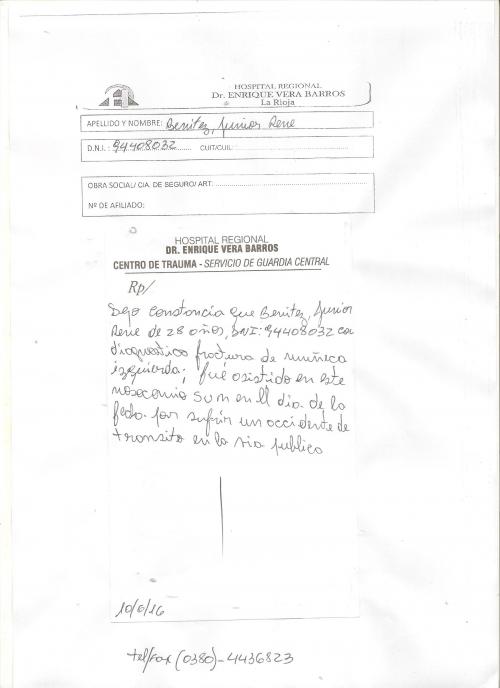 HOSPITAL REGIONAL
Dr. ENRIQUE VERA BARROS
La Rioja
APELLIDO Y NOMBRE: Benitez, Junior Rene
D.N.I.: 94408032 CUIT/CUIL:
OBRA SOCIAL/ CIA. DE SEGURO/ ART:
Nº DE AFILIADO:
HOSPITAL REGIONAL
DR. ENRIQUE VERA BARROS
CENTRO DE TRAUMA - SERVICIO DE GUARDIA CENTRAL
Rp/
Dejo constancia que Benitez, Junior
Rene de 28 años, DNI: 94408032 con
diagnostico fractura de muñeca
izquierda; fué asistido en este
nosocomio en el dia de la
fecha por sufrir un accidente de
transito en la via publica
10/6/16
tel/fax (0380)-4436823